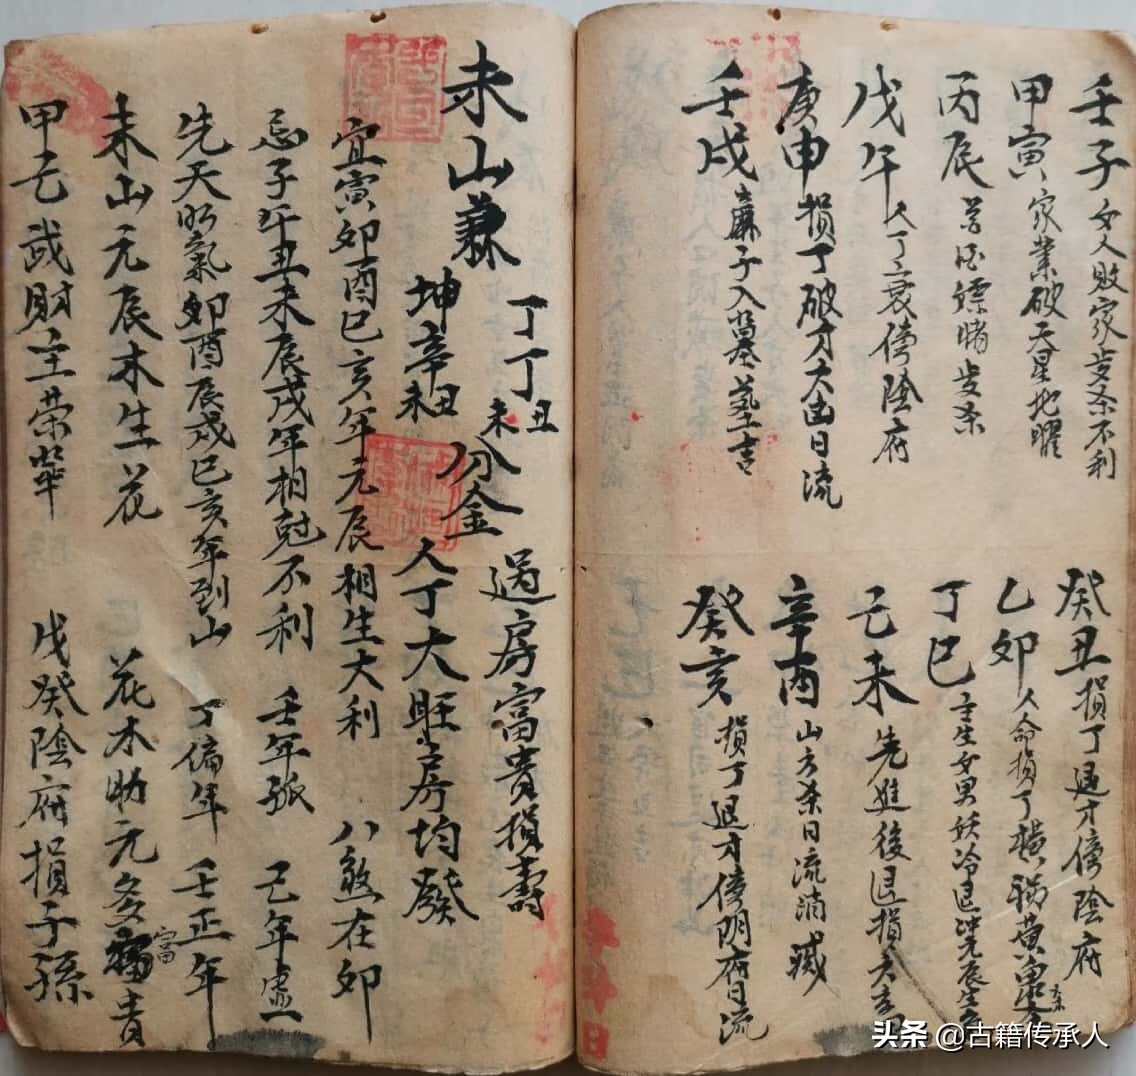 壬子 女人敗家 不利
甲寅 家業破 天星地曜
丙辰
戊午 人丁衰傍陰府
庚申 損丁破才大凶日流
壬戌 廉子入墓 葬吉
癸丑 損丁退才傍陰府
乙卯 人命損丁橫禍黄
丁巳 生女男妖冷退 元辰
己未 先進後退損
辛酉 山方杀日流消滅
癸亥 損丁退才傍阴府日流
未山兼
丁丁丑未
坤辛丑未
分金
過房富貴損壽
人丁大旺房房均發
宜寅卯酉巳亥年元辰相生大利 八煞在卯
忌子午丑未辰戌年相尅不利 壬年孤 己年虚
先天 氣卯酉辰戌巳亥年到山 丁偏年 壬正年
未山元辰木生花 花木助元多富貴
甲乙武財主荣華 戊癸陰府損子孫
头条 @古籍传承人